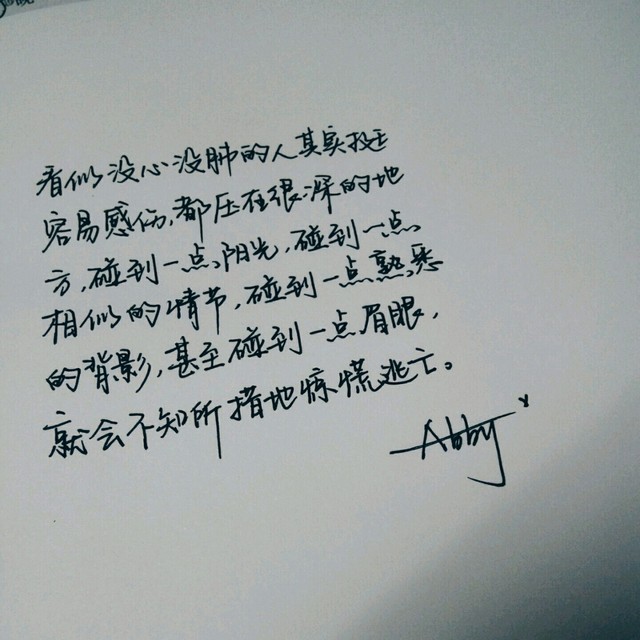 看似没心没肺的人其实最
容易感伤,都压在很深的地
方,碰到一点阳光,碰到一点
相似的情节,碰到一点熟悉
的背影,甚至碰到一点眉眼,
就会不知所措地惊慌逃亡。
Abby